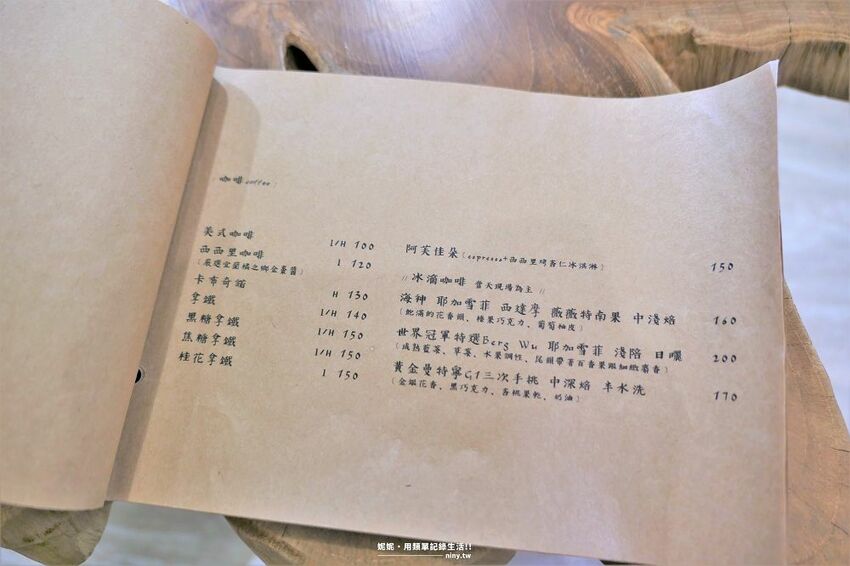 咖啡 coffee
美式咖啡 I/H 100
西西里咖啡 I 120
(嚴選宜蘭橘之鄉金棗醬)
卡布奇諾 H 130
拿鐵 I/H 140
黑糖拿鐵 I/H 150
焦糖拿鐵 I/H 150
桂花拿鐵 I 150
阿芙佳朵 (espresso+西西里烤杏仁冰淇淋) 150
// 冰滴咖啡 當天現場為主 //
海神 耶加雪菲 西達摩 薇薇特南果 中淺焙 160
(飽滿的花香韻、榛果巧克力、葡萄柚皮)
世界冠軍特選Berg Wu 耶加雪菲 淺陪 日曬 200
(成熟藍莓、草莓、水果調性、尾韻帶著百香果跟細緻麝香)
黃金曼特寧G1三次手挑 中深焙 半水洗 170
(金銀花香、黑巧克力、杏桃果乾、奶油)
妮妮•用類單記錄生活!!
niny.tw